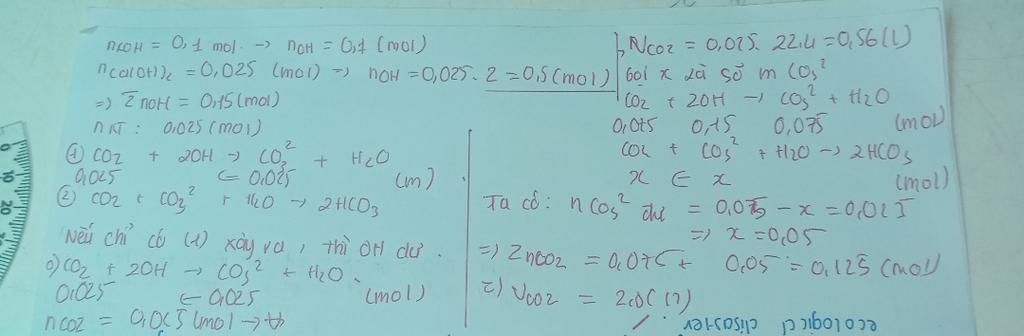 nKOH = 0,1 mol. → nOH = 0,1 (mol)
nCa(OH)2 = 0,025 (mol) => nOH = 0,025. 2 = 0,5 (mol)
=) ΣnOH = 0,15 (mol)
nKT: 0,025 (mol)
① CO2 + 2OH → CO3² + H2O
0,025 ← 0,025 (m)
② CO2 + CO3² + H2O → 2HCO3
Nếu chỉ có (1) xảy ra, thì OH dư.
a) CO2 + 2OH → CO3² + H2O.
0,025 ← 0,025 (mol)
nCO2 = 0,025 (mol →
b, NCO2 = 0,025. 22.4 = 0,56 (l)
Gọi x là số m CO3²
CO2 + 2OH → CO3² + H2O
0,075 0,15 0,075 (mol)
CO2 + CO3² + H2O → 2HCO3
x ← x (mol)
Ta có: nCO3² dư = 0,075 - x = 0,025
=> x = 0,05
=) ΣnCO2 = 0,075 + 0,05 = 0,125 (mol)
=) VCO2 = 2,8 (l)
ecological disaster